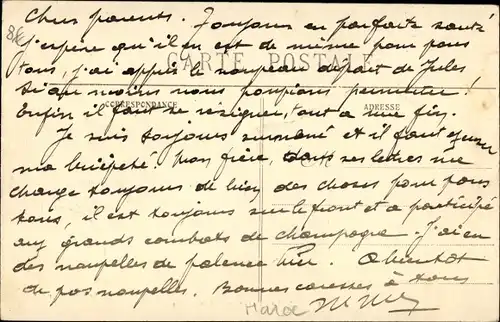 Chers parents. Toujours en parfaite santé
j'espère qu'il en est de même pour vous
tous, j'ai appris le nouveau départ de Jules
CARTE POSTALE
Si au moins nous pouvions permuter !
CORRESPONDANCE
ADRESSE
Enfin il faut se résigner, tout a une fin.
Je suis toujours surmené et il faut excuser
ma brièveté. Mon frère, dans ses lettres me
charge toujours de bien des choses pour vous
tous, il est toujours sur le front et a participé
aux grands combats de Champagne. J'ai eu
des nouvelles de Valence hier. A bientôt
de vos nouvelles. Bonnes caresses à tous
Maroc